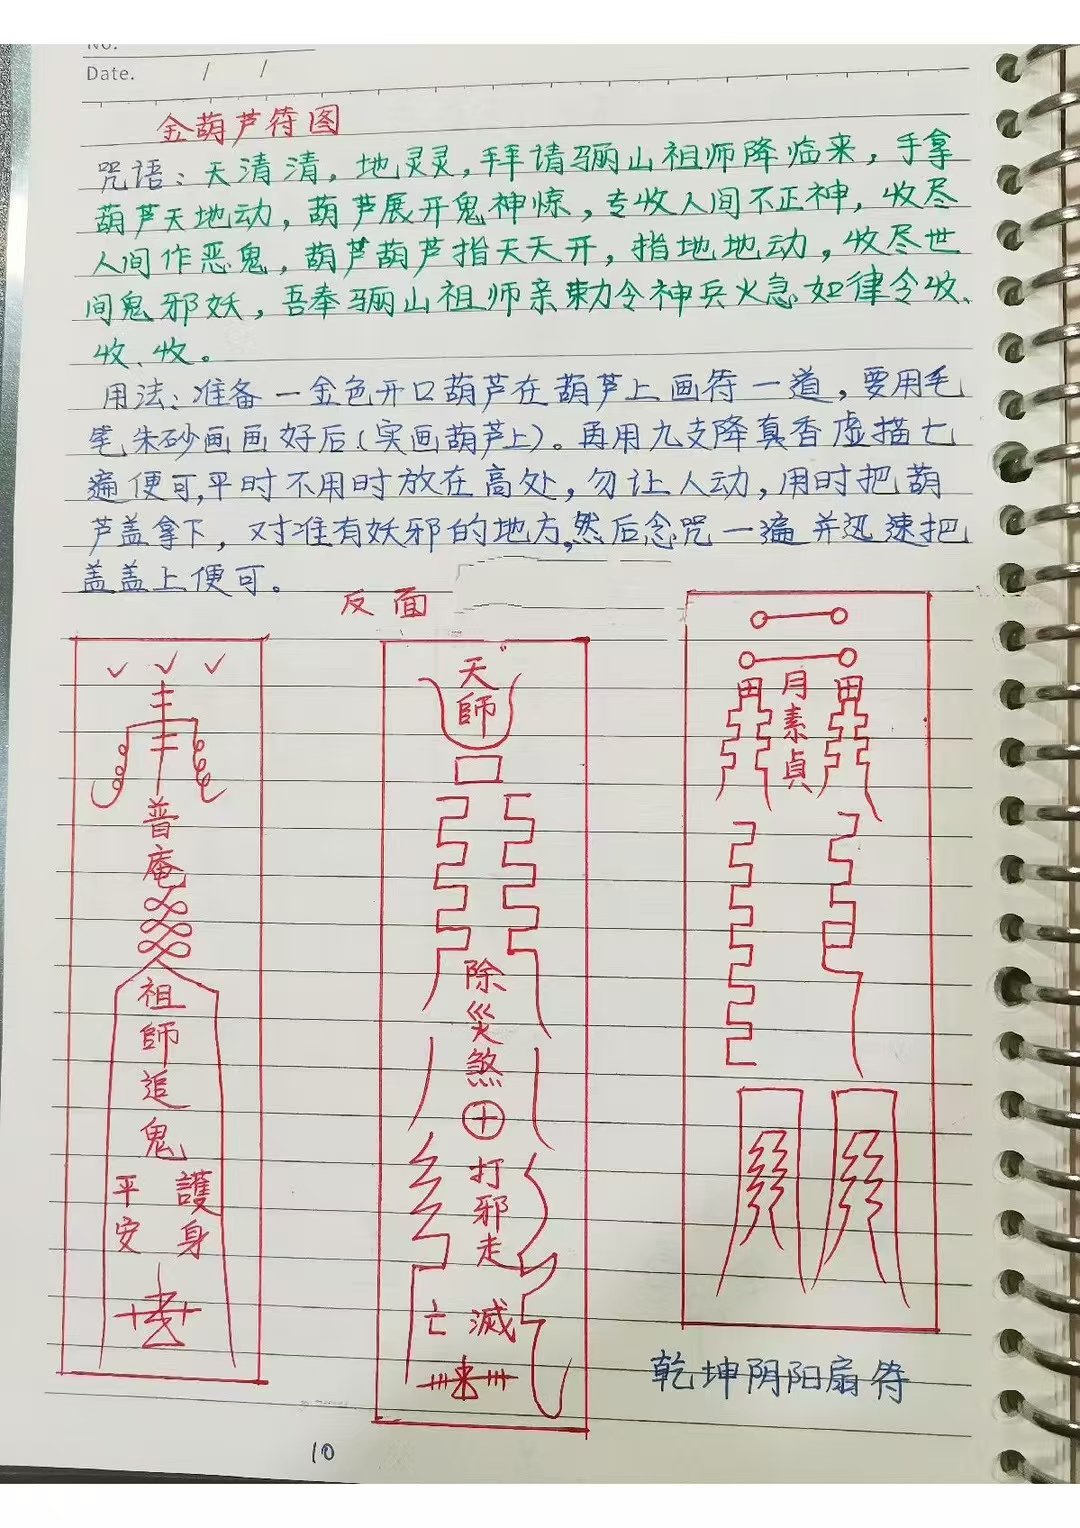 No.
Date. / /
金葫芦符图
咒语：天清清，地灵灵，拜请骊山祖师降临来，手拿
葫芦天地动，葫芦展开鬼神惊，专收人间不正神，收尽
人间作恶鬼，葫芦葫芦指天天开，指地地动，收尽世
间鬼邪妖，吾奉骊山祖师亲勅令神兵火急如律令收、
收、收。
用法：准备一金色开口葫芦在葫芦上画符一道，要用毛
笔朱砂画画好后（实画葫芦上）。再用九支降真香虚描七
遍便可，平时不用时放在高处，勿让人动，用时把葫
芦盖拿下，对准有妖邪的地方，然后念咒一遍并迅速把
盖盖上便可。
反面
普
庵
祖
師
追
鬼
平安
護身
天
師
除
災
煞
打
邪
走
亡 滅
田 月 田
素
貞
乾坤阴阳扇符
10